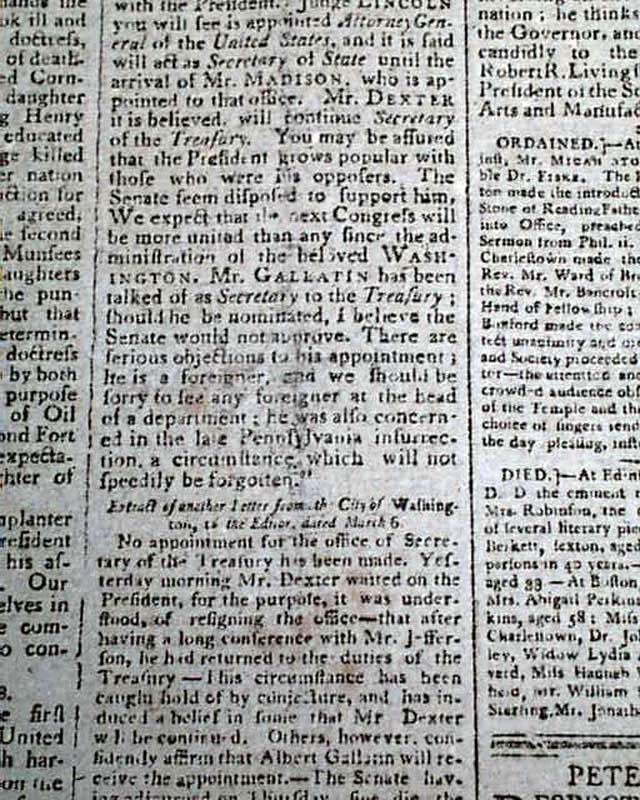 ok ill and
doctress,
of death.
ed Corn-
daughter
g Henry
educated
ge killed
er nation
action for
agreed,
he second
Munsees
laughters
he pun-
but that
etermin-
doctress
by both
purpose
of Oil
ond Fort
expecta-
ghter of
nplanter
resident
his as-
Our
elves in
e com-
o con-
e first
United
h har-
on the
with the President. Judge LINCOLN
you will see is appointed Attorney Gen-
eral of the United States, and it is said
will act as Secretary of State until the
arrival of Mr. MADISON, who is ap-
pointed to that office. Mr. DEXTER
it is believed, will continue Secretary
of the Treasury. You may be assured
that the President grows popular with
those who were his opposers. The
Senate seem disposed to support him,
We expect that the next Congress will
be more united than any since the ad-
ministration of the beloved WASH-
INGTON. Mr. GALLATIN has been
talked of as Secretary to the Treasury ;
should he be nominated, I believe the
Senate would not approve. There are
serious objections to his appointment ;
he is a foreigner, and we should be
sorry to see any foreigner at the head
of a department ; he was also concern-
ed in the late Pennsylvania insurrec-
tion, a circumstance which will not
speedily be forgotten."
Extract of another Letter from the City of Washing-
ton, to the Editor, dated March 6.
No appointment for the office of Secre-
tary of the Treasury has been made. Yes-
terday morning Mr. Dexter waited on the
President, for the purpose, it was under-
stood, of resigning the office—that after
having a long conference with Mr. Jeffer-
son, he had returned to the duties of the
Treasury — This circumstance has been
caught hold of by conjecture, and has in-
duced a belief in some that Mr Dexter
will be continued. Others, however, con-
fidently affirm that Albert Gallatin will re-
ceive the appointment.—The Senate hav-
ing adjourned on Thursday, sine die, the
nation ; he thinks
the Governor, and
candidly to the
Robert R. Livingst
President of the So
Arts and Manufac
ORDAINED.]—At
inst. Mr. MICAH STO
ble Dr. FISKE. The
ton made the introduc
Stone of Reading
into Office, preached
Sermon from Phil. ii.
Charlestown made the
Rev. Mr. Ward of Br
the Rev. Mr. Bancroft
Hand of Fellowship ;
made the con
fect unanimity and or
and Society proceeded
ter—the attention and
crowded audience ob
of the Temple and th
choice of singers tend
the day pleasing, inst
DIED.]—At Edin
D. D the eminent
Mrs. Robinson, the
of several literary pie
sexton, aged
persons in 40 years.—
aged 33 — At Boston
Mrs. Abigail Perkins
kins, aged 58 ; Miss
Charlestown, Dr. Jo
ley, Widow Lydia
Miss Hannah
Mr. William
Sterling, Mr. Jonath
PETE